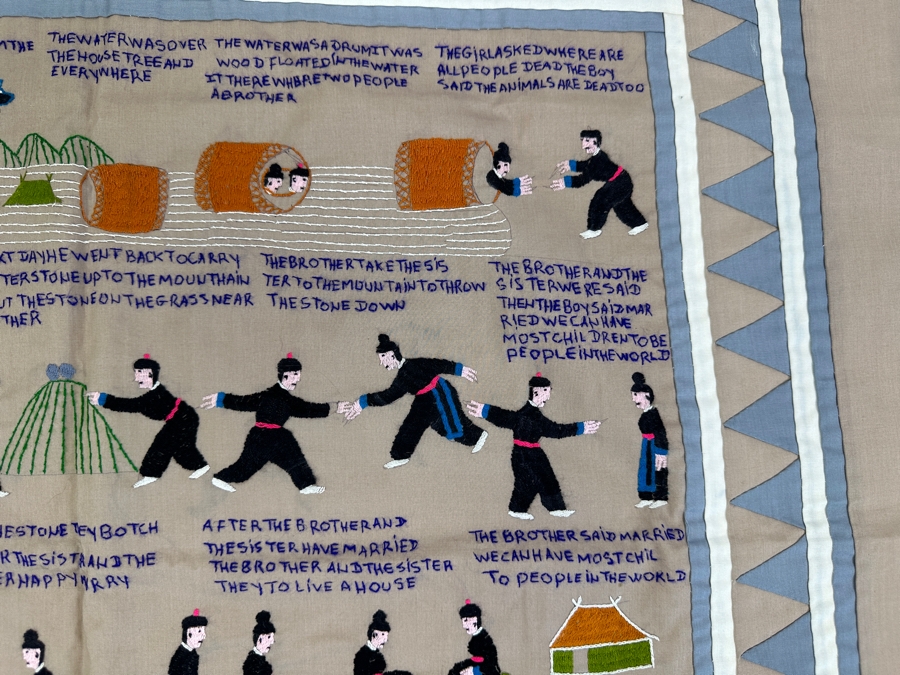 THE
THEWATERWASOVER
THEHOUSETREEAND
EVERYWHERE
THEWATERWASADRUMITWAS
WOODFLOATEDINTHEWATER
ITTHEREWHBRETWOPEOPLE
ABROTHER
THEGIRLASKEDWHEREARE
ALLPEOPLEDEADTHEBOY
SAIDTHEANIMALSAREDEADTOO
XTDAYHEWENTBACKTOCARRY
TERSTONEUPTOTHEMOUNTHAIN
UTTHESTONEONTHEGRASSNEAR
THER
THEBROTHERTAKETHESIS
TERTOTHEMOUNTAINTOTHROW
THESTONEDOWN
THEBROTHERANDTHE
SISTERWERESAID
THENTHEBOYSAIDMAR
RIEDWECANHAVE
MOSTCHILDRENTOBE
PEOPLEINTHEWORLD
HESTONETEYBOTCH
RTHESISTRANDTHE
RHAPPY
AFTERTHEBROTHERAND
THESISTERHAVEMARRIED
THEBROTHERANDTHESISTER
THEYTOLIVEAHOUSE
THEBROTHERSAIDMARRIED
WECANHAVEMOSTCHIL
TOPEOPLEINTHEWORLD